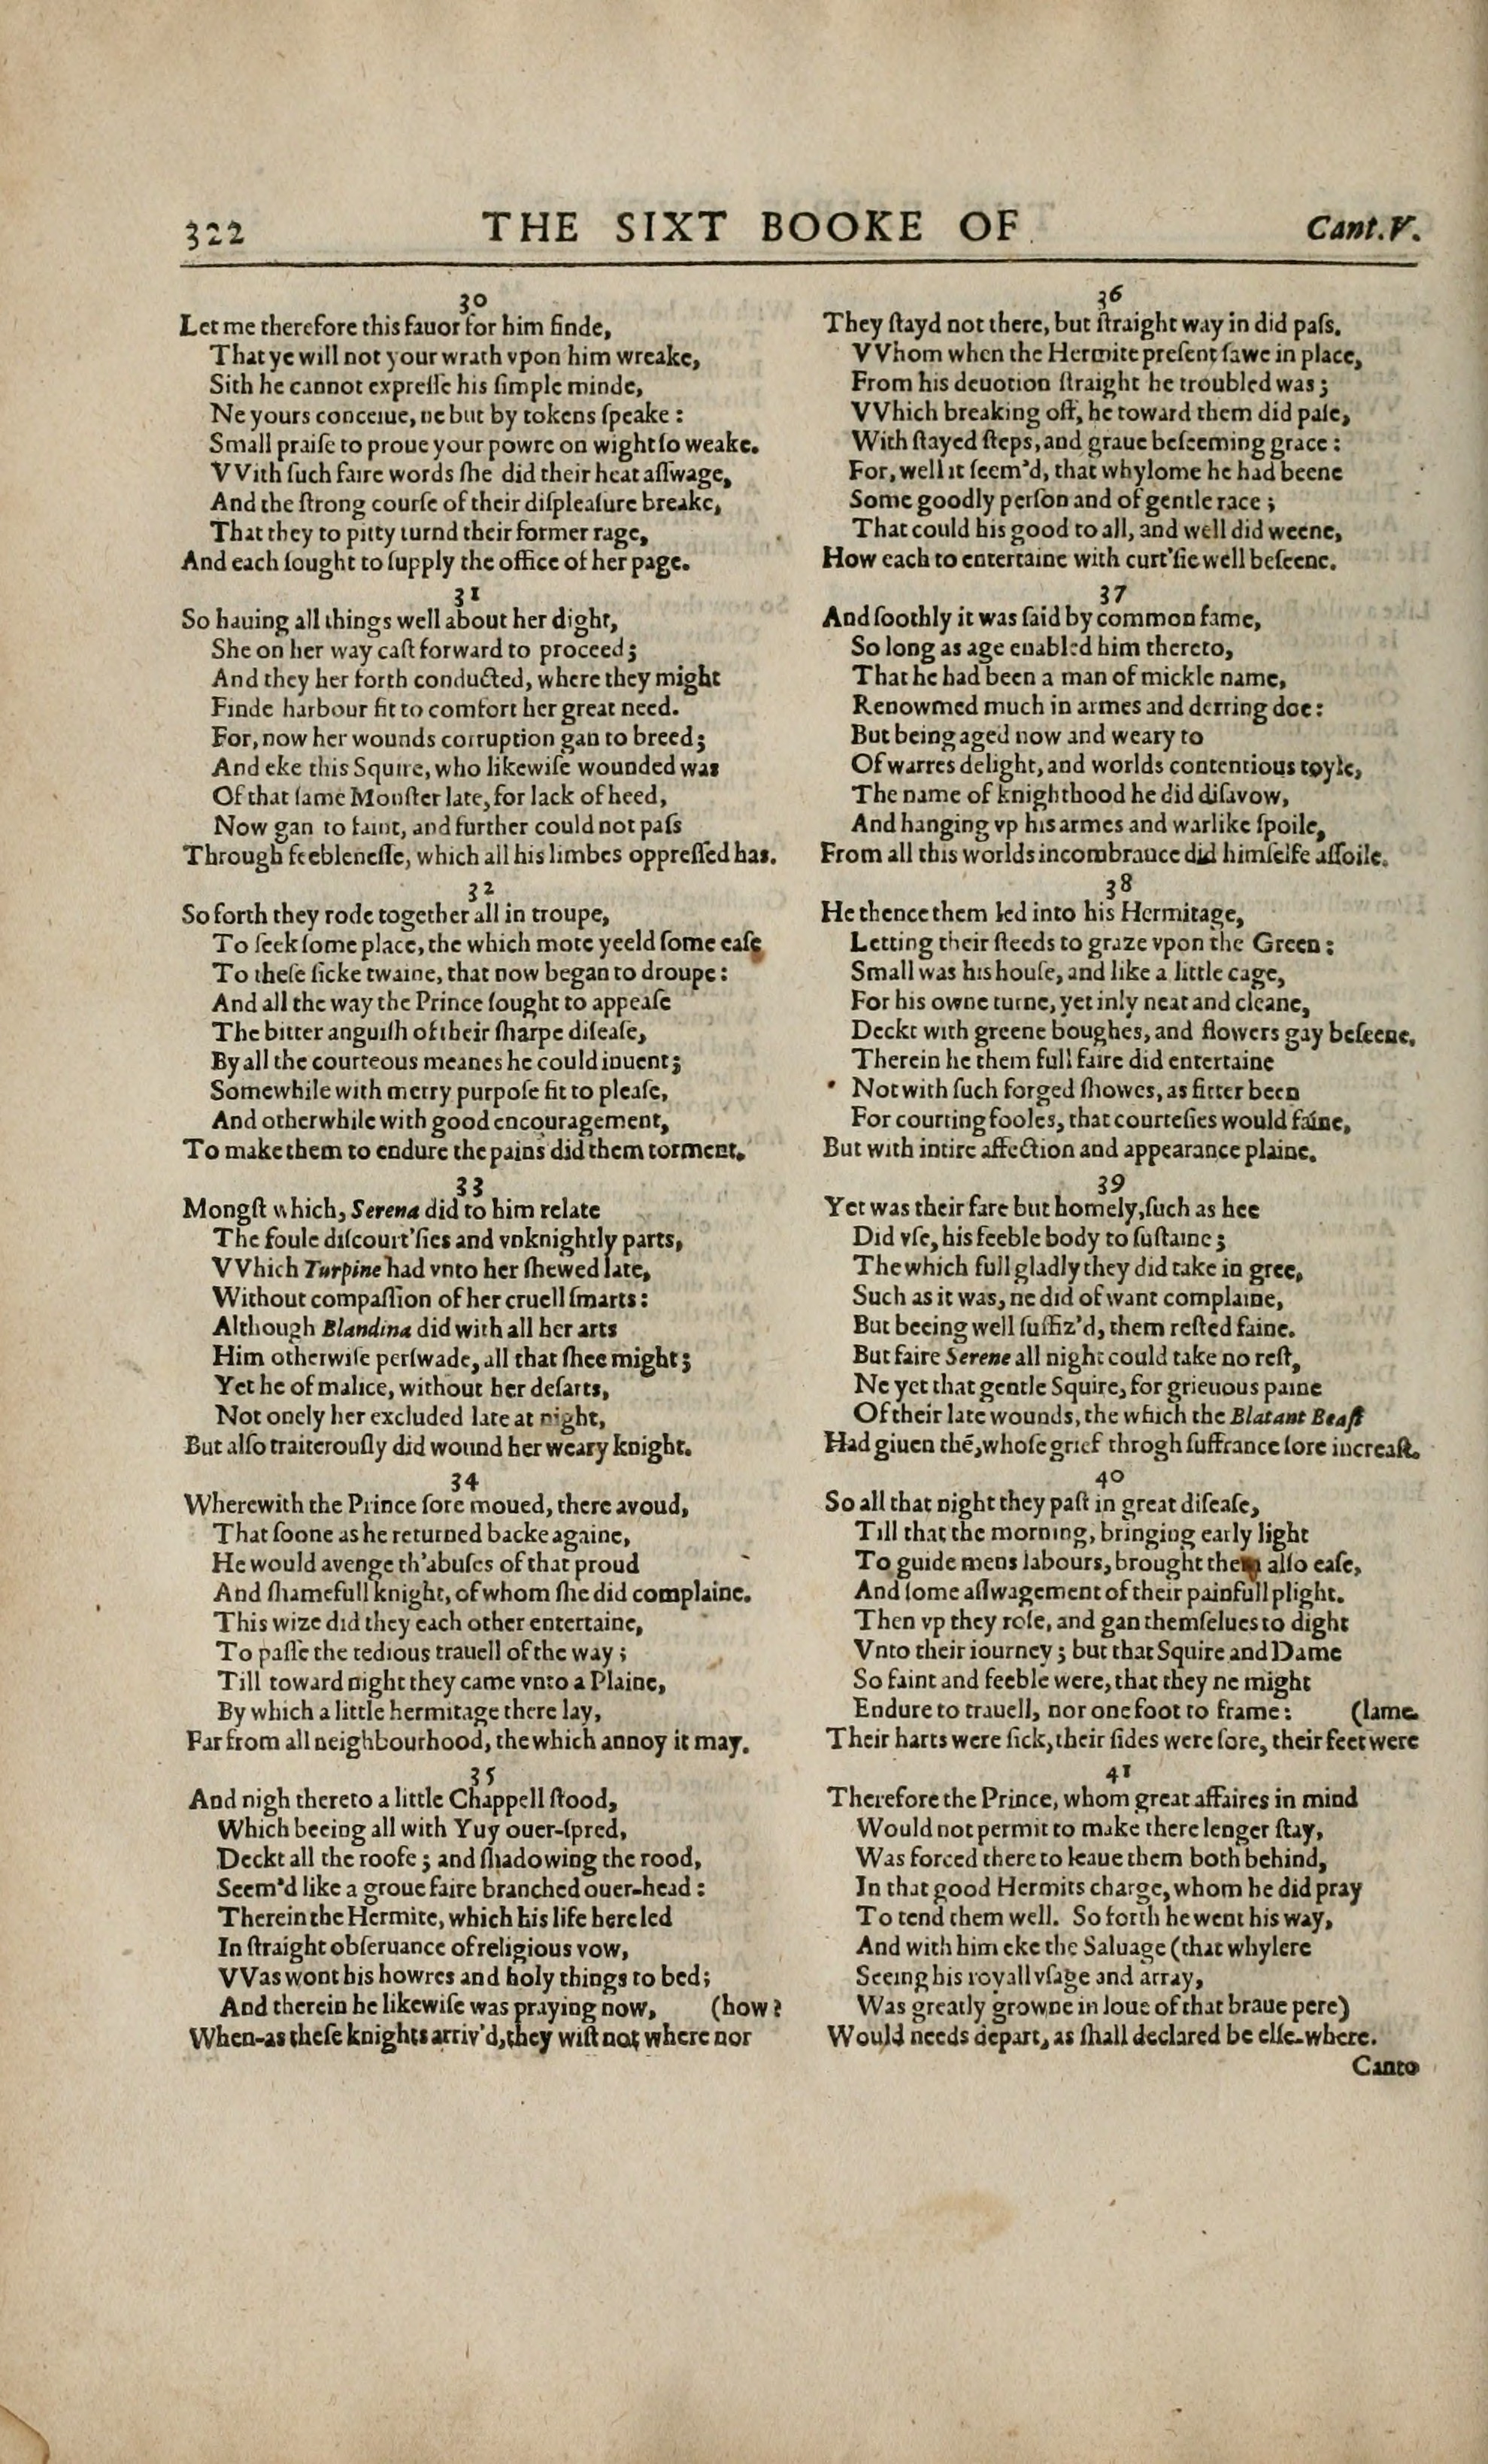 322 THE SIXT BOOKE OF Cant.V.
30
Let me therefore this fauor for him finde,
That ye will not your wrath vpon him wreake,
Sith he cannot expreſſe his ſimple minde,
Ne yours conceiue, ne but by tokens ſpeake :
Small praiſe to proue your powre on wight ſo weake.
VVith ſuch faire words ſhe did their heat aſſwage,
And the ſtrong courſe of their diſpleaſure breake,
That they to pitty turnd their former rage,
And each ſought to ſupply the office of her page.
31
So hauing all things well about her dight,
She on her way caſt forward to proceed;
And they her forth conducted, where they might
Finde harbour fit to comfort her great need.
For, now her wounds corruption gan to breed;
And eke this Squire, who likewiſe wounded was
Of that ſame Monſter late, for lack of heed,
Now gan to faint, and further could not paſs
Through feebleneſſe, which all his limbes oppreſſed has.
32
So forth they rode together all in troupe,
To ſeek ſome place, the which mote yeeld ſome eaſe
To theſe ſicke twaine, that now began to droupe:
And all the way the Prince ſought to appeaſe
The bitter anguiſh of their ſharpe diſeaſe,
By all the courteous meanes he could inuent;
Somewhile with merry purpoſe fit to pleaſe,
And otherwhile with good encouragement,
To make them to endure the pains did them torment.
33
Mongſt which, Serena did to him relate
The foule diſcourt'ſies and vnknightly parts,
VVhich Turpine had vnto her ſhewed late,
Without compaſſion of her cruell ſmarts:
Although Blandina did with all her arts
Him otherwiſe perſwade, all that ſhee might;
Yet he of malice, without her deſarts,
Not onely her excluded late at night,
But alſo traiterouſly did wound her weary knight.
34
Wherewith the Prince ſore moued, there avoud,
That ſoone as he returned backe againe,
He would avenge th'abuſes of that proud
And ſhamefull knight, of whom ſhe did complaine.
This wize did they each other entertaine,
To paſſe the tedious trauell of the way ;
Till toward night they came vnto a Plaine,
By which a little hermitage there lay,
Far from all neighbourhood, the which annoy it may.
35
And nigh thereto a little Chappell ſtood,
Which beeing all with Yuy ouer-ſpred,
Deckt all the roofe ; and ſhadowing the rood,
Seem'd like a groue faire branched ouer-head :
Therein the Hermite, which his life here led
In ſtraight obſeruance of religious vow,
VVas wont his howres and holy things to bed;
And therein he likewiſe was praying now, (how?
When-as theſe knights arriv'd, they wiſt not where nor
36
They ſtayd not there, but ſtraight way in did paſs.
VVhom when the Hermite preſent ſawe in place,
From his deuotion ſtraight he troubled was ;
VVhich breaking off, he toward them did paſe,
With ſtayed ſteps, and graue beſeeming grace :
For, well it ſeem'd, that whylome he had beene
Some goodly perſon and of gentle race ;
That could his good to all, and well did weene,
How each to entertaine with curt'ſie well beſeene.
37
And ſoothly it was ſaid by common fame,
So long as age enabled him thereto,
That he had been a man of mickle name,
Renowmed much in armes and derring doe:
But being aged now and weary to
Of warres delight, and worlds contentious toyle,
The name of knighthood he did diſavow,
And hanging vp his armes and warlike ſpoile,
From all this worlds incombraunce did himſelfe aſſoile.
38
He thence them led into his Hermitage,
Letting their ſteeds to graze vpon the Green :
Small was his houſe, and like a little cage,
For his owne turne, yet inly neat and cleane,
Deckt with greene boughes, and flowers gay beſeene.
Therein he them full faire did entertaine
Not with ſuch forged ſhowes, as fitter been
For courting fooles, that courteſies would faine,
But with intire affection and appearance plaine.
39
Yet was their fare but homely, ſuch as hee
Did vſe, his feeble body to ſuſtaine ;
The which full gladly they did take in gree,
Such as it was, ne did of want complaine,
But beeing well ſuffiz'd, them reſted faine.
But faire Serene all night could take no reſt,
Ne yet that gentle Squire, for grieuous paine
Of their late wounds, the which the Blatant Beaſt
Had giuen thē, whoſe grief throgh ſuffrance ſore increaſt.
40
So all that night they paſt in great diſeaſe,
Till that the morning, bringing early light
To guide mens labours, brought them alſo eaſe,
And ſome aſſwagement of their painfull plight.
Then vp they roſe, and gan themſelues to dight
Vnto their iourney ; but that Squire and Dame
So faint and feeble were, that they ne might
Endure to trauell, nor one foot to frame : (lame.
Their harts were ſick, their ſides were ſore, their feet were
41
Therefore the Prince, whom great affaires in mind
Would not permit to make there lenger ſtay,
Was forced there to leaue them both behind,
In that good Hermits charge, whom he did pray
To tend them well. So forth he went his way,
And with him eke the Saluage (that whylere
Seeing his royall vſage and array,
Was greatly growne in loue of that braue pere)
Would needs depart, as ſhall declared be elſe-where.
Canto